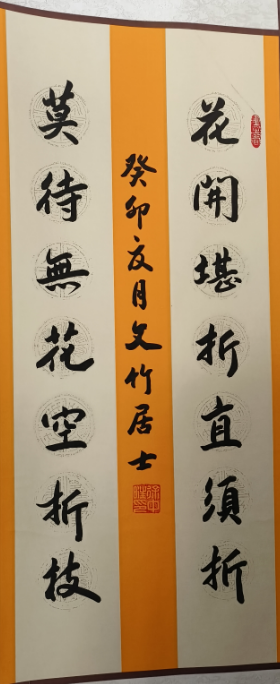 花開堪折直須折
莫待無花空折技
癸卯友月文竹居士